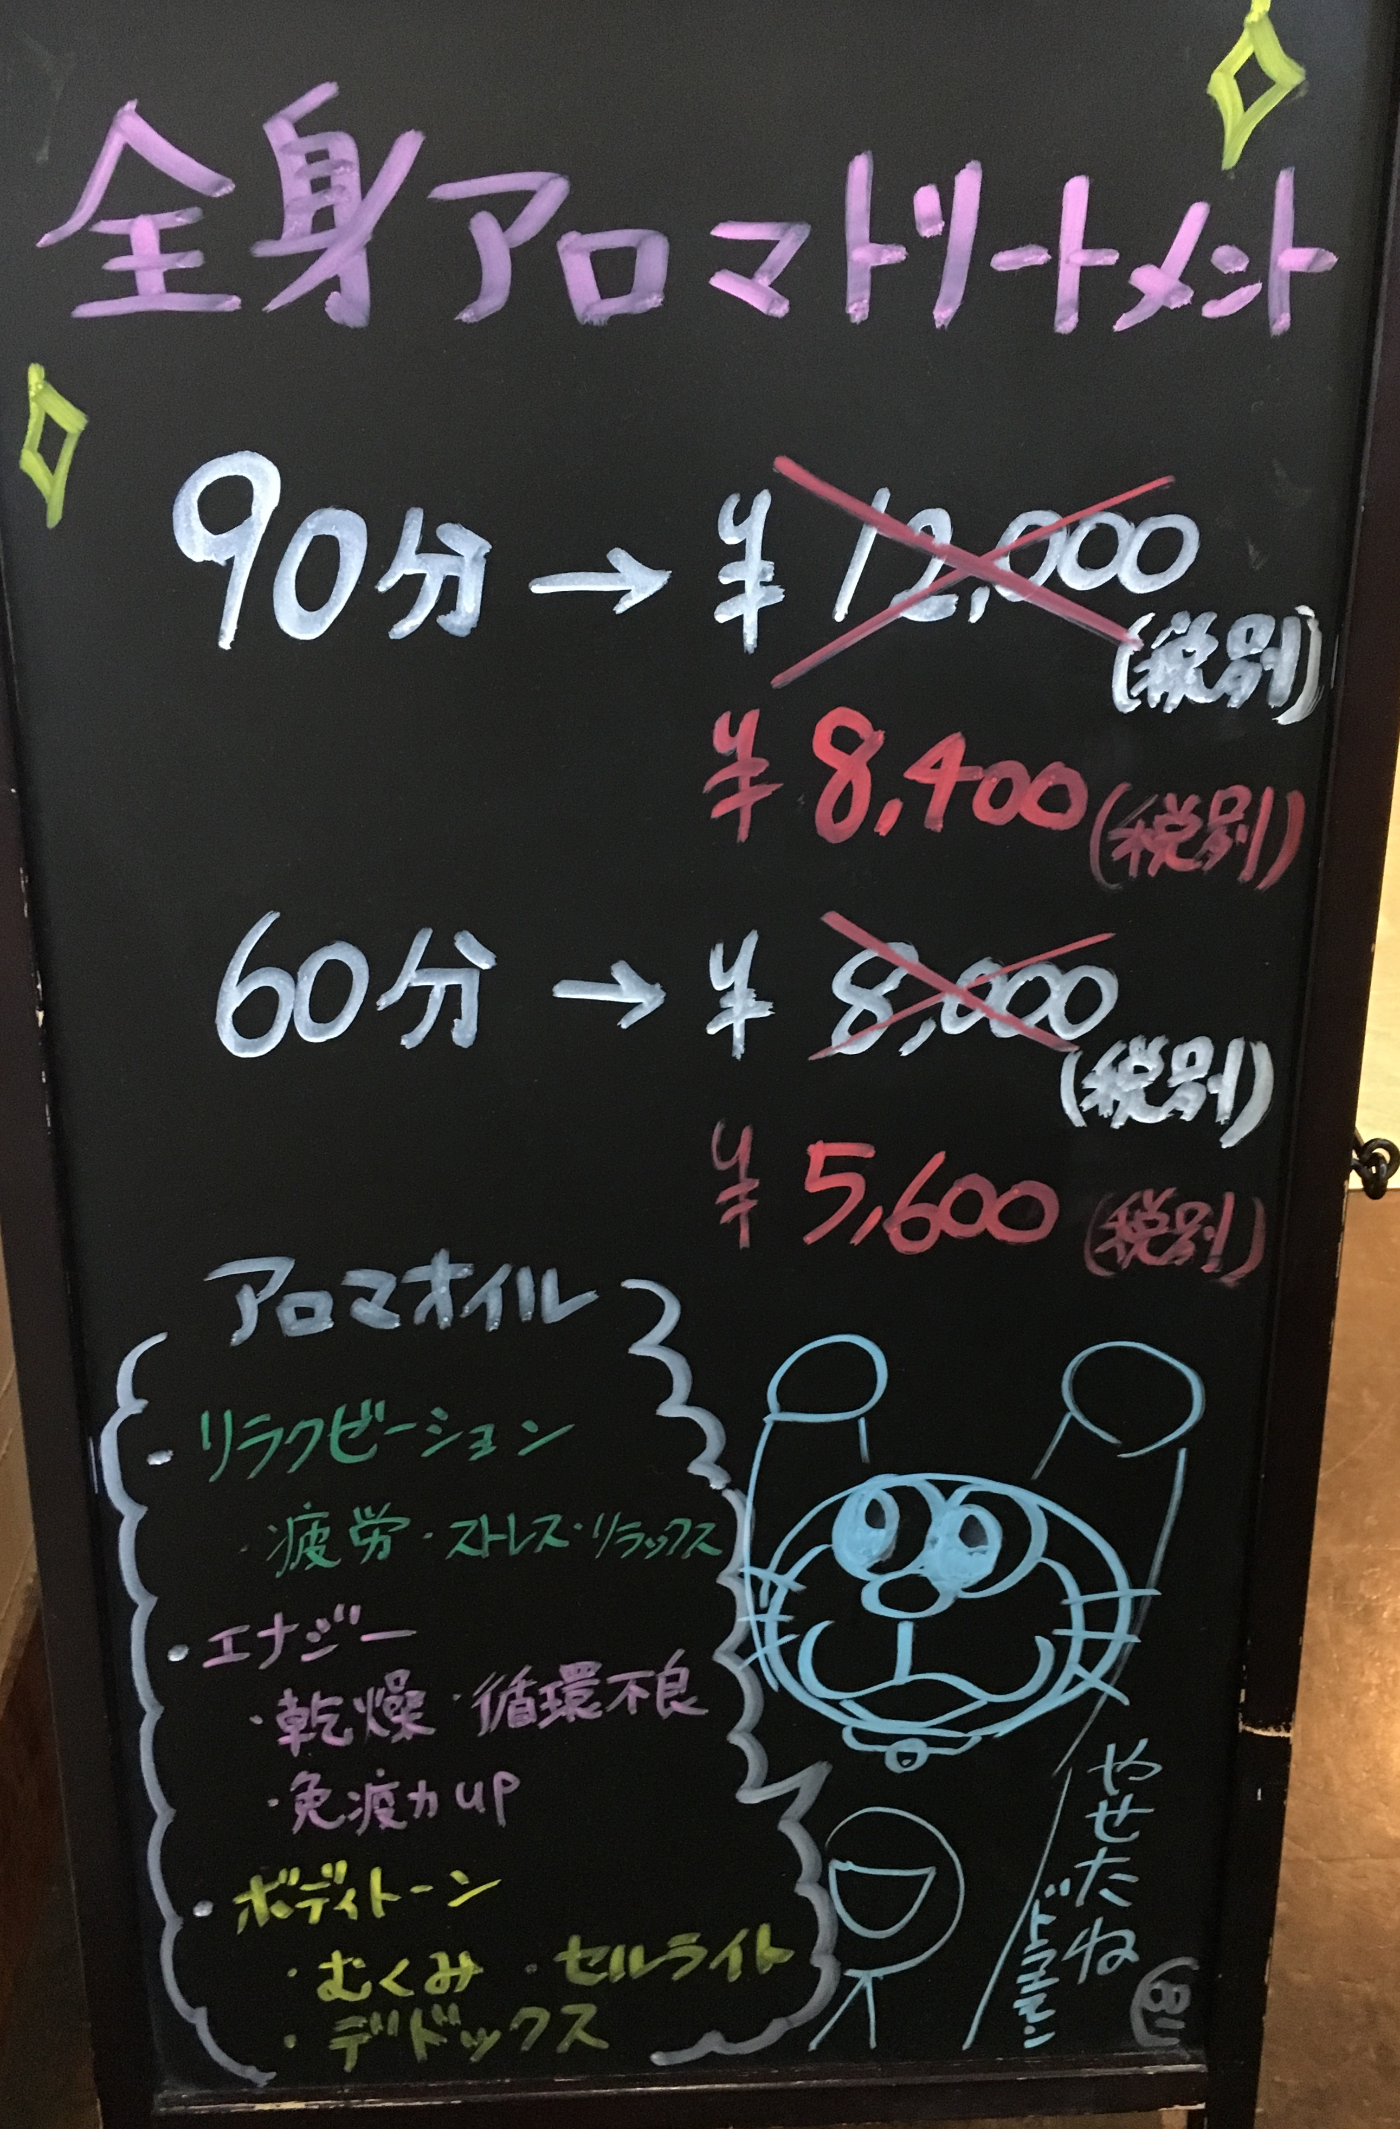 全身アロマトリートメント
90分→¥12,000
(税別)
¥8,400(税別)
60分→¥8,000
(税別)
¥5,600(税別)
アロマオイル
・リラクゼーション
・疲労・ストレス・リラックス
・エナジー
・乾燥・循環不良
・免疫力UP
・ボディトーン
・むくみ・セルライト
・デドックス
やせたね
ドラえもん